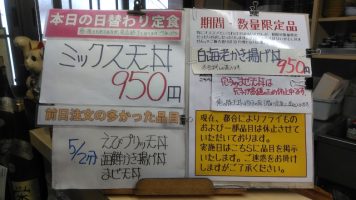 本日の日替わり定食
ミックス天丼
950円
前日注文の多かった品目
5/2分
えびプリッ天丼
海鮮かき揚げ丼
まぜ天丼
期間、数量限定品
白海老かき揚げ丼
950円
現在、都合によりフライもの
および一部品目は休止させて
いただいております。
実施日はこちらに品目を掲示
いたします。ご迷惑をお掛け
しますがご了承ください。